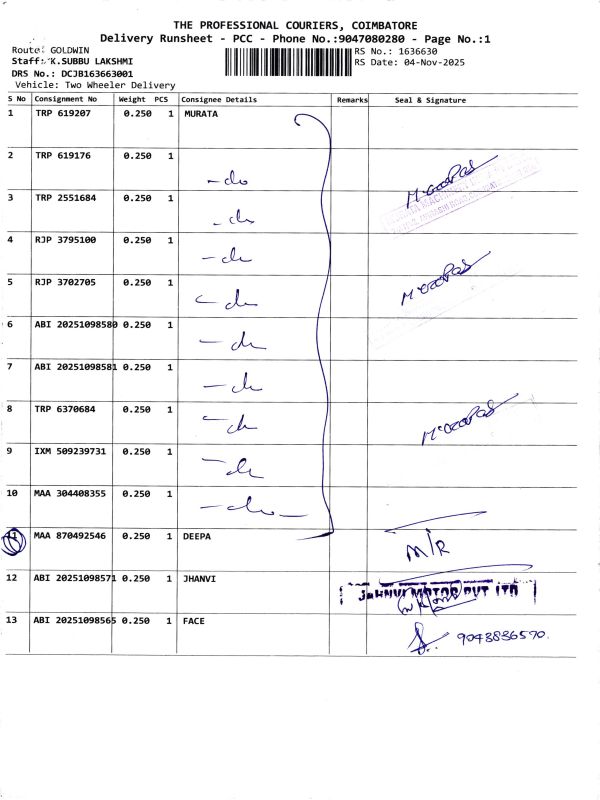 THE PROFESSIONAL COURIERS, COIMBATORE
Delivery Runsheet - PCC - Phone No.:9047080280 - Page No.:1
Route: GOLDWIN
RS No.: 1636630
Staff: K.SUBBU LAKSHMI
RS Date: 04-Nov-2025
DRS No.: DCJB163663001
Vehicle: Two Wheeler Delivery
S No Consignment No Weight PCS Consignee Details Remarks Seal & Signature
1 TRP 619207 0.250 1 MURATA
2 TRP 619176 0.250 1 -do
3 TRP 2551684 0.250 1 -do
4 RJP 3795100 0.250 1 -do
5 RJP 3702705 0.250 1 -do
6 ABI 20251098580 0.250 1 -do
7 ABI 20251098581 0.250 1 -do
8 TRP 6370684 0.250 1 -do
9 IXM 509239731 0.250 1 -do
10 MAA 304408355 0.250 1 -do-
11 MAA 870492546 0.250 1 DEEPA M/R
12 ABI 20251098571 0.250 1 JHANVI JAHNVI MOTOR PVT LTD
13 ABI 20251098565 0.250 1 FACE 9043836570.